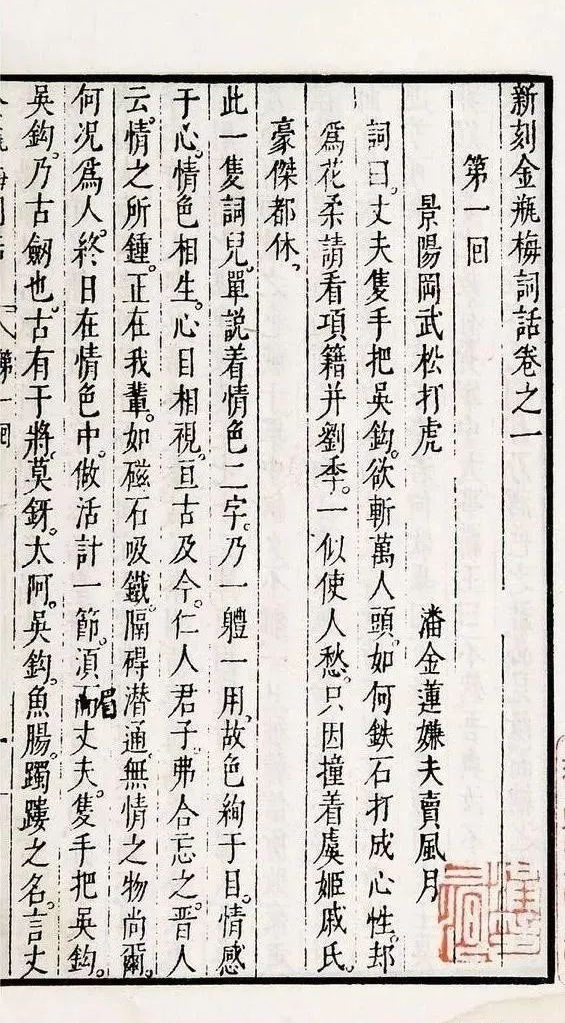 新刻金瓶梅詞話卷之一
第一回
景陽岡武松打虎 潘金蓮嫌夫賣風月
詞曰。丈夫隻手把吳鈎。欲斬萬人頭。如何鉄石打成心性。却
爲花柔請看項籍并劉季。一似使人愁。只因撞着虞姬戚氏。
豪傑都休。
此一隻詞兒。單説着情色二字。乃一體一用。故色絢于目。情感
于心。情色相生。心目相視。亘古及今。仁人君子。弗合忘之。晋人
云。情之所鍾。正在我輩。如磁石吸鐵。隔碍潜通。無情之物尚爾。
何况爲人。終日在情色中。做活計一節。須而丈夫。隻手把吳鈎。
眉
吳鈎。乃古劒也。古有干將。莫釾。太阿。吳鈎。魚腸。躅䠧之名。言丈
第一回